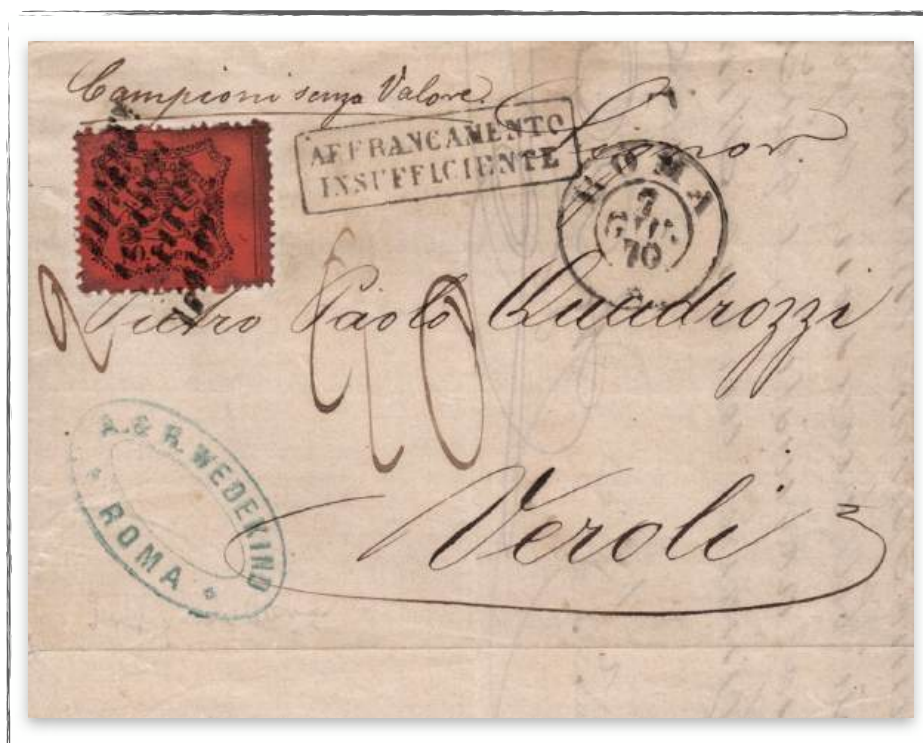 Campioni senza Valore.
AFFRANCAMENTO
INSUFFICIENTE
Signor
ROMA
7
GIU.
70
Pietro Paolo Quadrozzi
2
20
Veroli
A. & R. WEDEKIND
ROMA